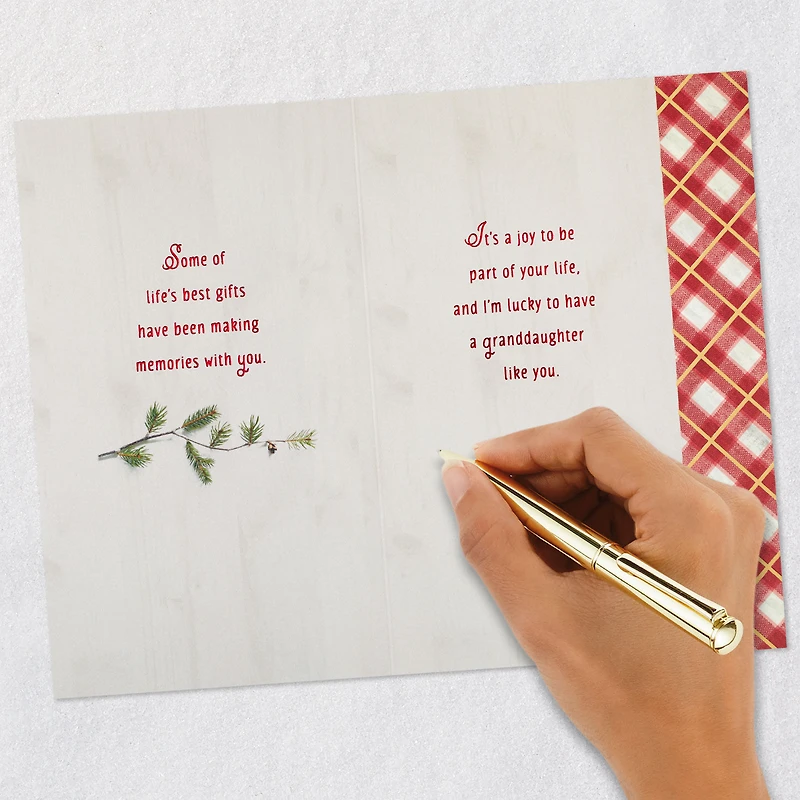 Some of
life's best gifts
have been making
memories with you.
It's a joy to be
part of your life,
and I'm lucky to have
a granddaughter
like you.